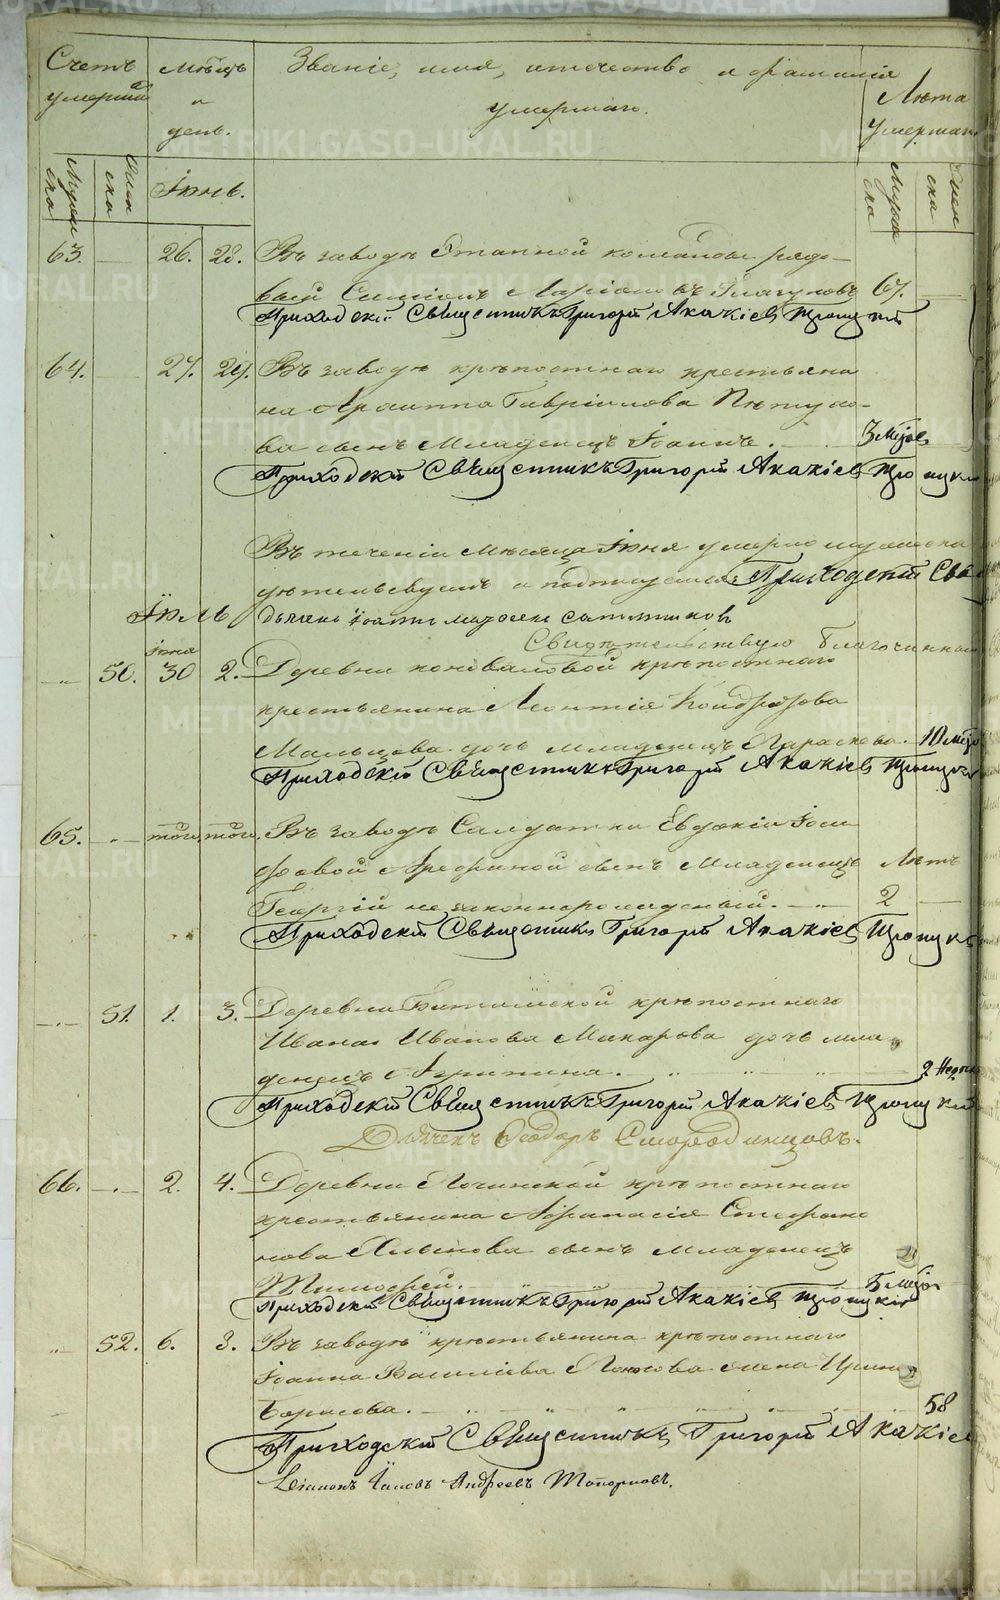 Счетъ умершихъ
Мѣсяцъ и день.
Званіе, имя, отечество и фамилія умершаго.
Лѣта умершаго
Мужеска
Женска
Іюнь.
Мужеска
Женска
63. 26. 28. Въ заводѣ Этапной команды рядо-
вый Симеонъ 67.
Приходскій Священникъ Григорій Акакіевъ Троицкій
64. 27. 29. Въ заводѣ крѣпостнаго крестьяни
на Архиппа Гавріилова Пѣтухо-
ва сынъ Младенецъ Іоаннъ. 3 мѣся
Приходскій Священникъ Григорій Акакіевъ Троицкі
Въ теченіи Мѣсяца Іюня умерло мужеска
Приходскій Свя
Іюль
Свидѣтельствую Благочинный
Іюня
50. 30 2. Деревни Коноваловой крѣпостнаго
крестьянина Леонтія Кондратова
Мальцова дочь младенецъ Параскева. 10 мѣся
Приходскій Священникъ Григорій Акакіевъ Троицкі
65. того. того. Въ заводѣ Салдатки Евдокіи Іоси
фовой Арефиной сынъ Младенецъ Лѣтъ
Георгій не законнорожденный. 2
Приходскій Священникъ Григорій Акакіевъ Троицкі
51. 1. 3. Деревни крѣпостнаго
Ивана Иванова Макарова дочь мла
денецъ Агрипина. 2 Недѣли
Приходскій Священникъ Григорій Акакіевъ Троицкій
Дьячекъ Ѳеодоръ Смородинцовъ.
66. 2. 4. Деревни крѣпостнаго
крестьянина Афанасія Стефано
нова сынъ младенецъ
Тимофей. 5 мѣся
Приходскій Священникъ Григорій Акакіевъ Троицкій
52. 6. 3. Въ заводѣ крестьянина крѣпостнаго
Іоанна Василіева жена Ирина
Борисова. 58
Приходскій Священникъ Григорій Акакіев
Андреевъ Топорковъ.
METRIKI.GASO-URAL.RU